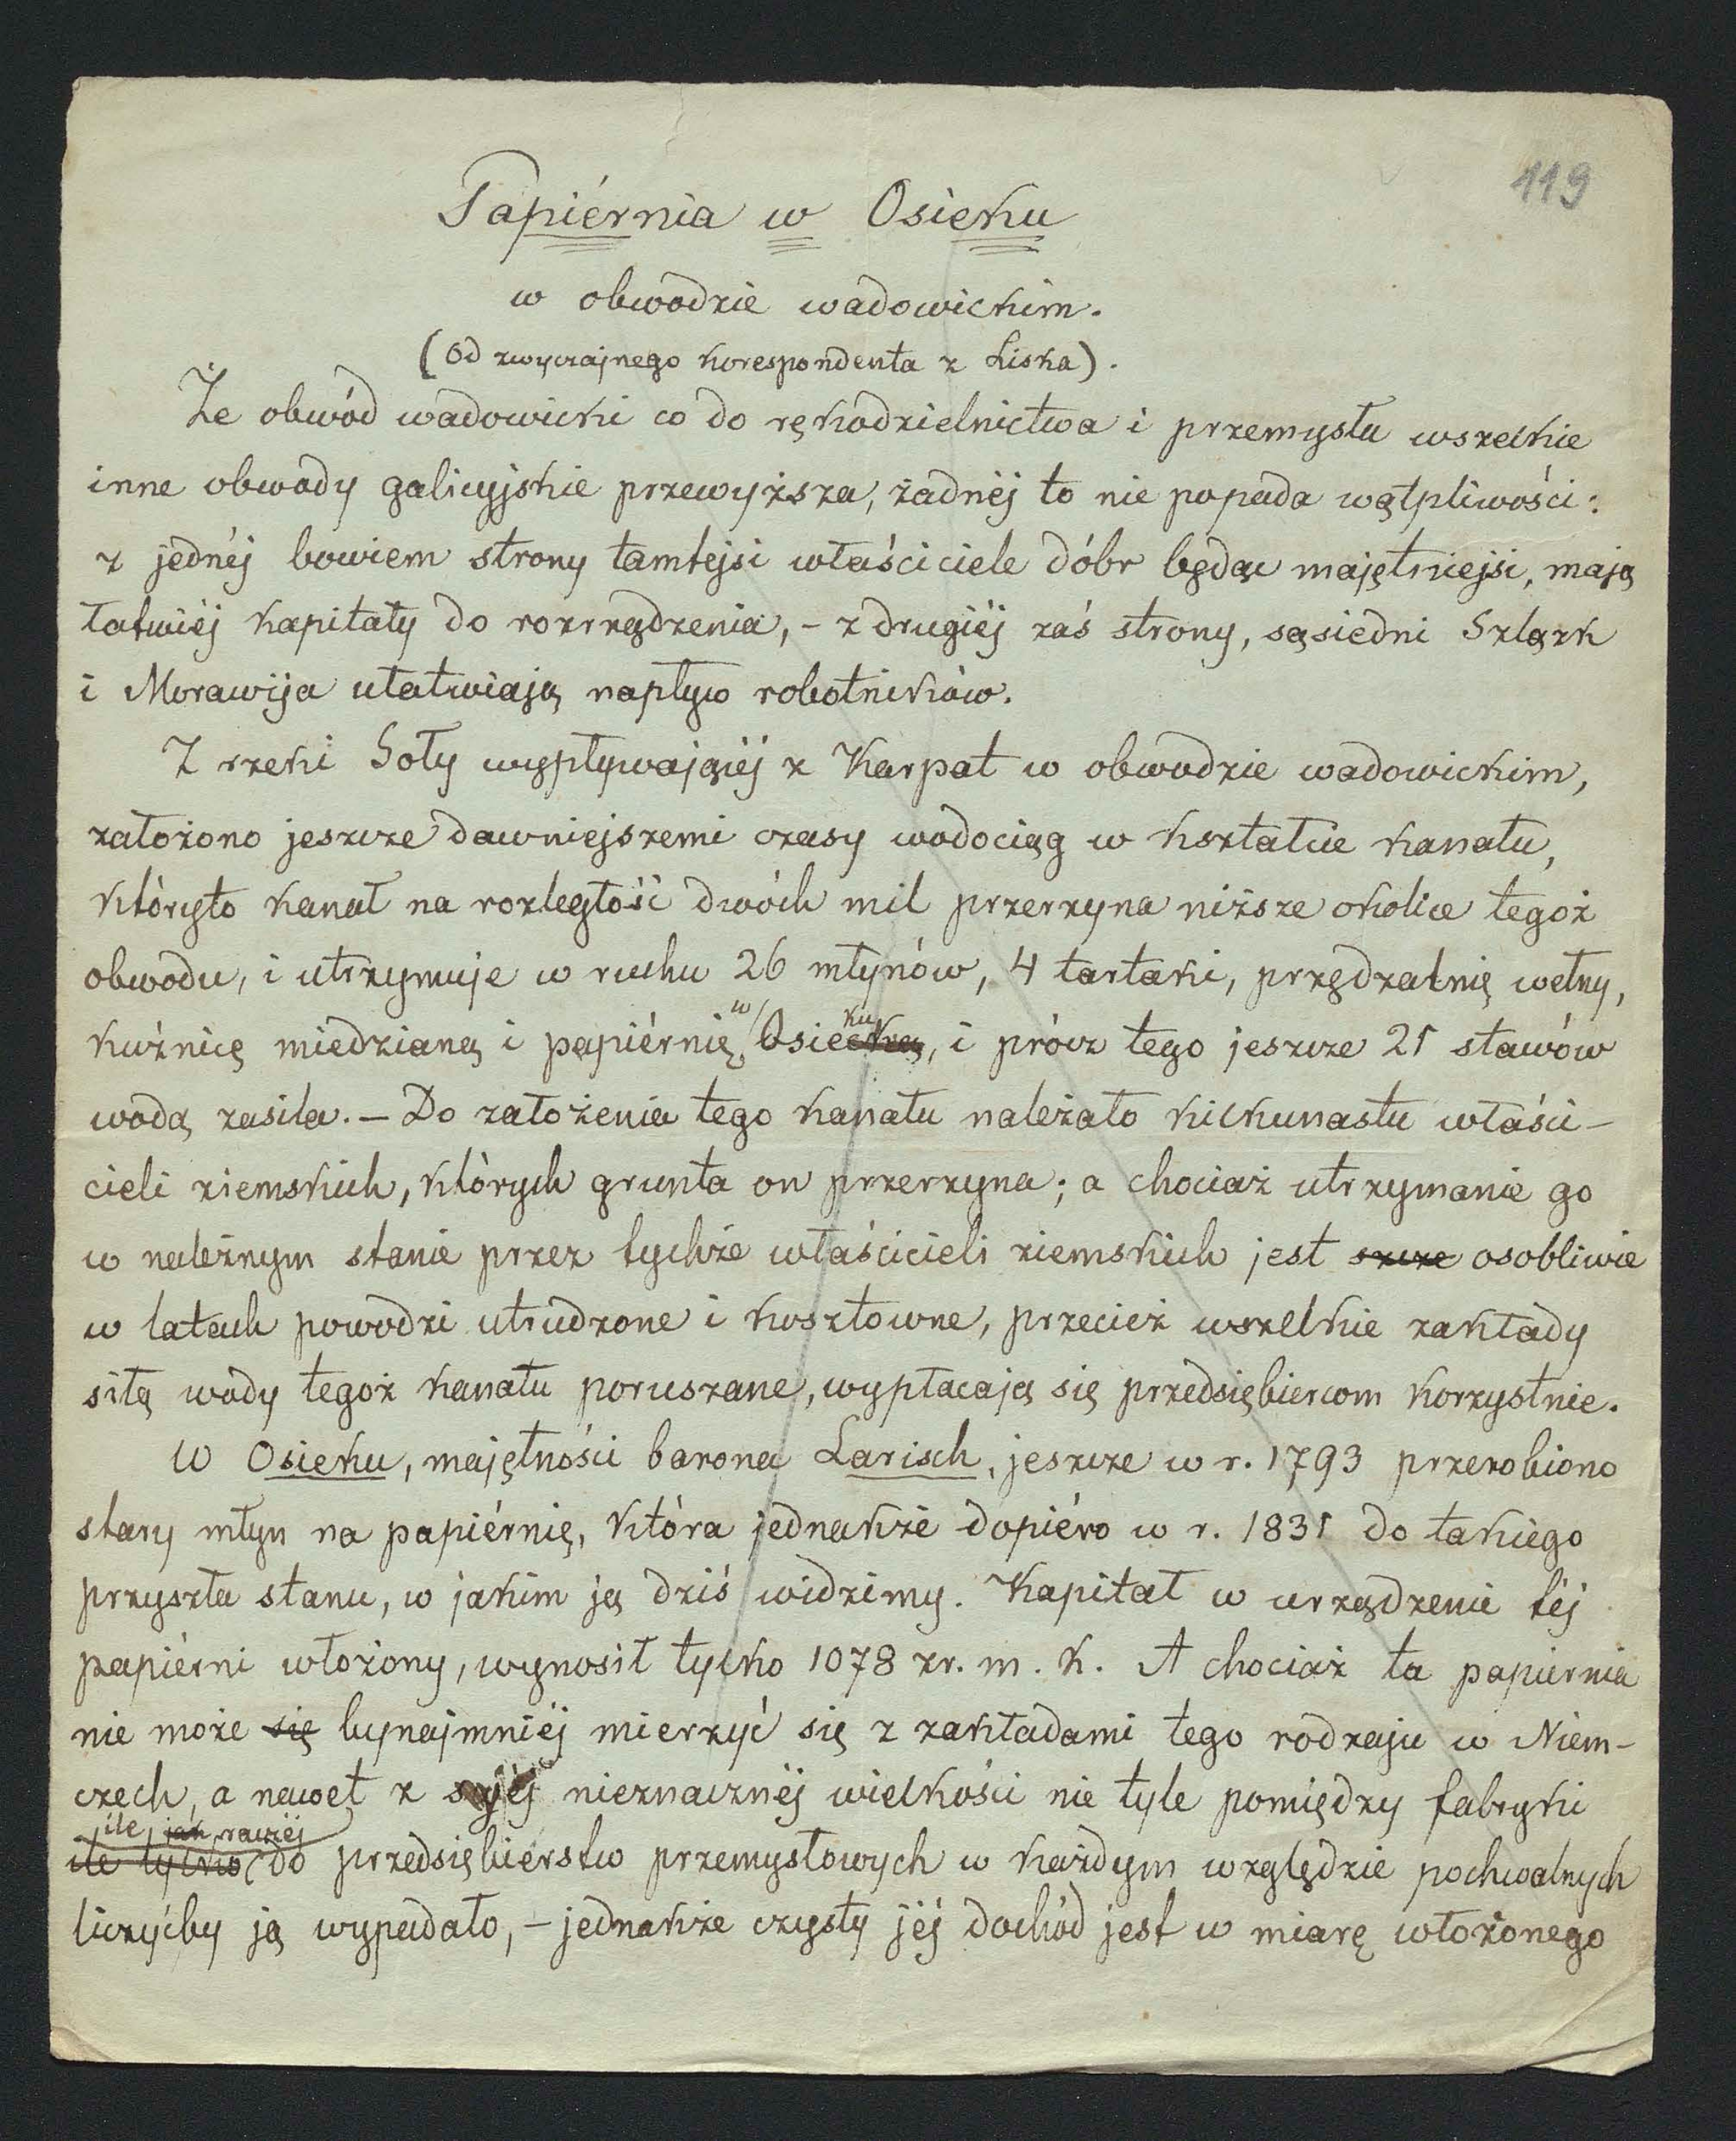 119
Papiérnia w Osieku
w obwodzie wadowickim.
(Od zwyczajnego korespondenta z Liska).
Że obwód wadowicki co do rękodzielnictwa i przemysłu wszelkie
inne obwody galicyjskie przewyższa, żadnéj to nie popada wątpliwości:
z jednéj bowiem strony tamtejsi właściciele dóbr będąc majętniejsi, mają
łatwiéj kapitały do rozrządzenia, – z drugiéj zaś strony, sąsiedni Szlązk
i Morawija ułatwiają napływ robotników.
Z rzeki Soły wypływającéj z Karpat w obwodzie wadowickim,
założono jeszcze dawniejszemi czasy wodociąg w kształcie kanału,
któryto kanał na rozległość dwóch mil przerzyna niższe okolice tegoż
obwodu, i utrzymuje w ruchu 26 młynów, 4 tartaki, przędzalnię wełny,
kuźnicę miedzianą i papiérnię w Osiecką ku, i prócz tego jeszcze 21 stawów
wodą zasila. – Do założenia tego kanału należało kilkunastu właści-
cieli ziemskich, których grunta on przerzyna; a chociaż utrzymanie go
w należnym stanie przez tychże właścicieli ziemskich jest szcze osobliwie
w latach powodzi utrudzone i kosztowne, przecież wszelkie zakłady
siłą wody tegoż kanału poruszane, wypłacają się przedsiębiercom korzystnie.
W Osieku, majętności barona Larisch, jeszcze w r. 1793 przerobiono
stary młyn na papiérnię, która jednakże dopiéro w r. 1831 do takiego
przyszła stanu, w jakim ją dziś widzimy. Kapitał w urządzenie téj
papiérni włożony, wynosił tylko 1078 zr. m. k. A chociaż ta papiernia
nie może się bynajmniéj mierzyć się z zakładami tego rodzaju w Niem-
czech, a nawet z swéj nieznacznéj wielkości nie tyle pomiędzy fabryki
ile jak raczéj
ile tylko do przedsiębierstw przemysłowych w każdym względzie pochwalnych
liczyćby ją wypadało, – jednakże czysty jéj dochód jest w miarę włożonego